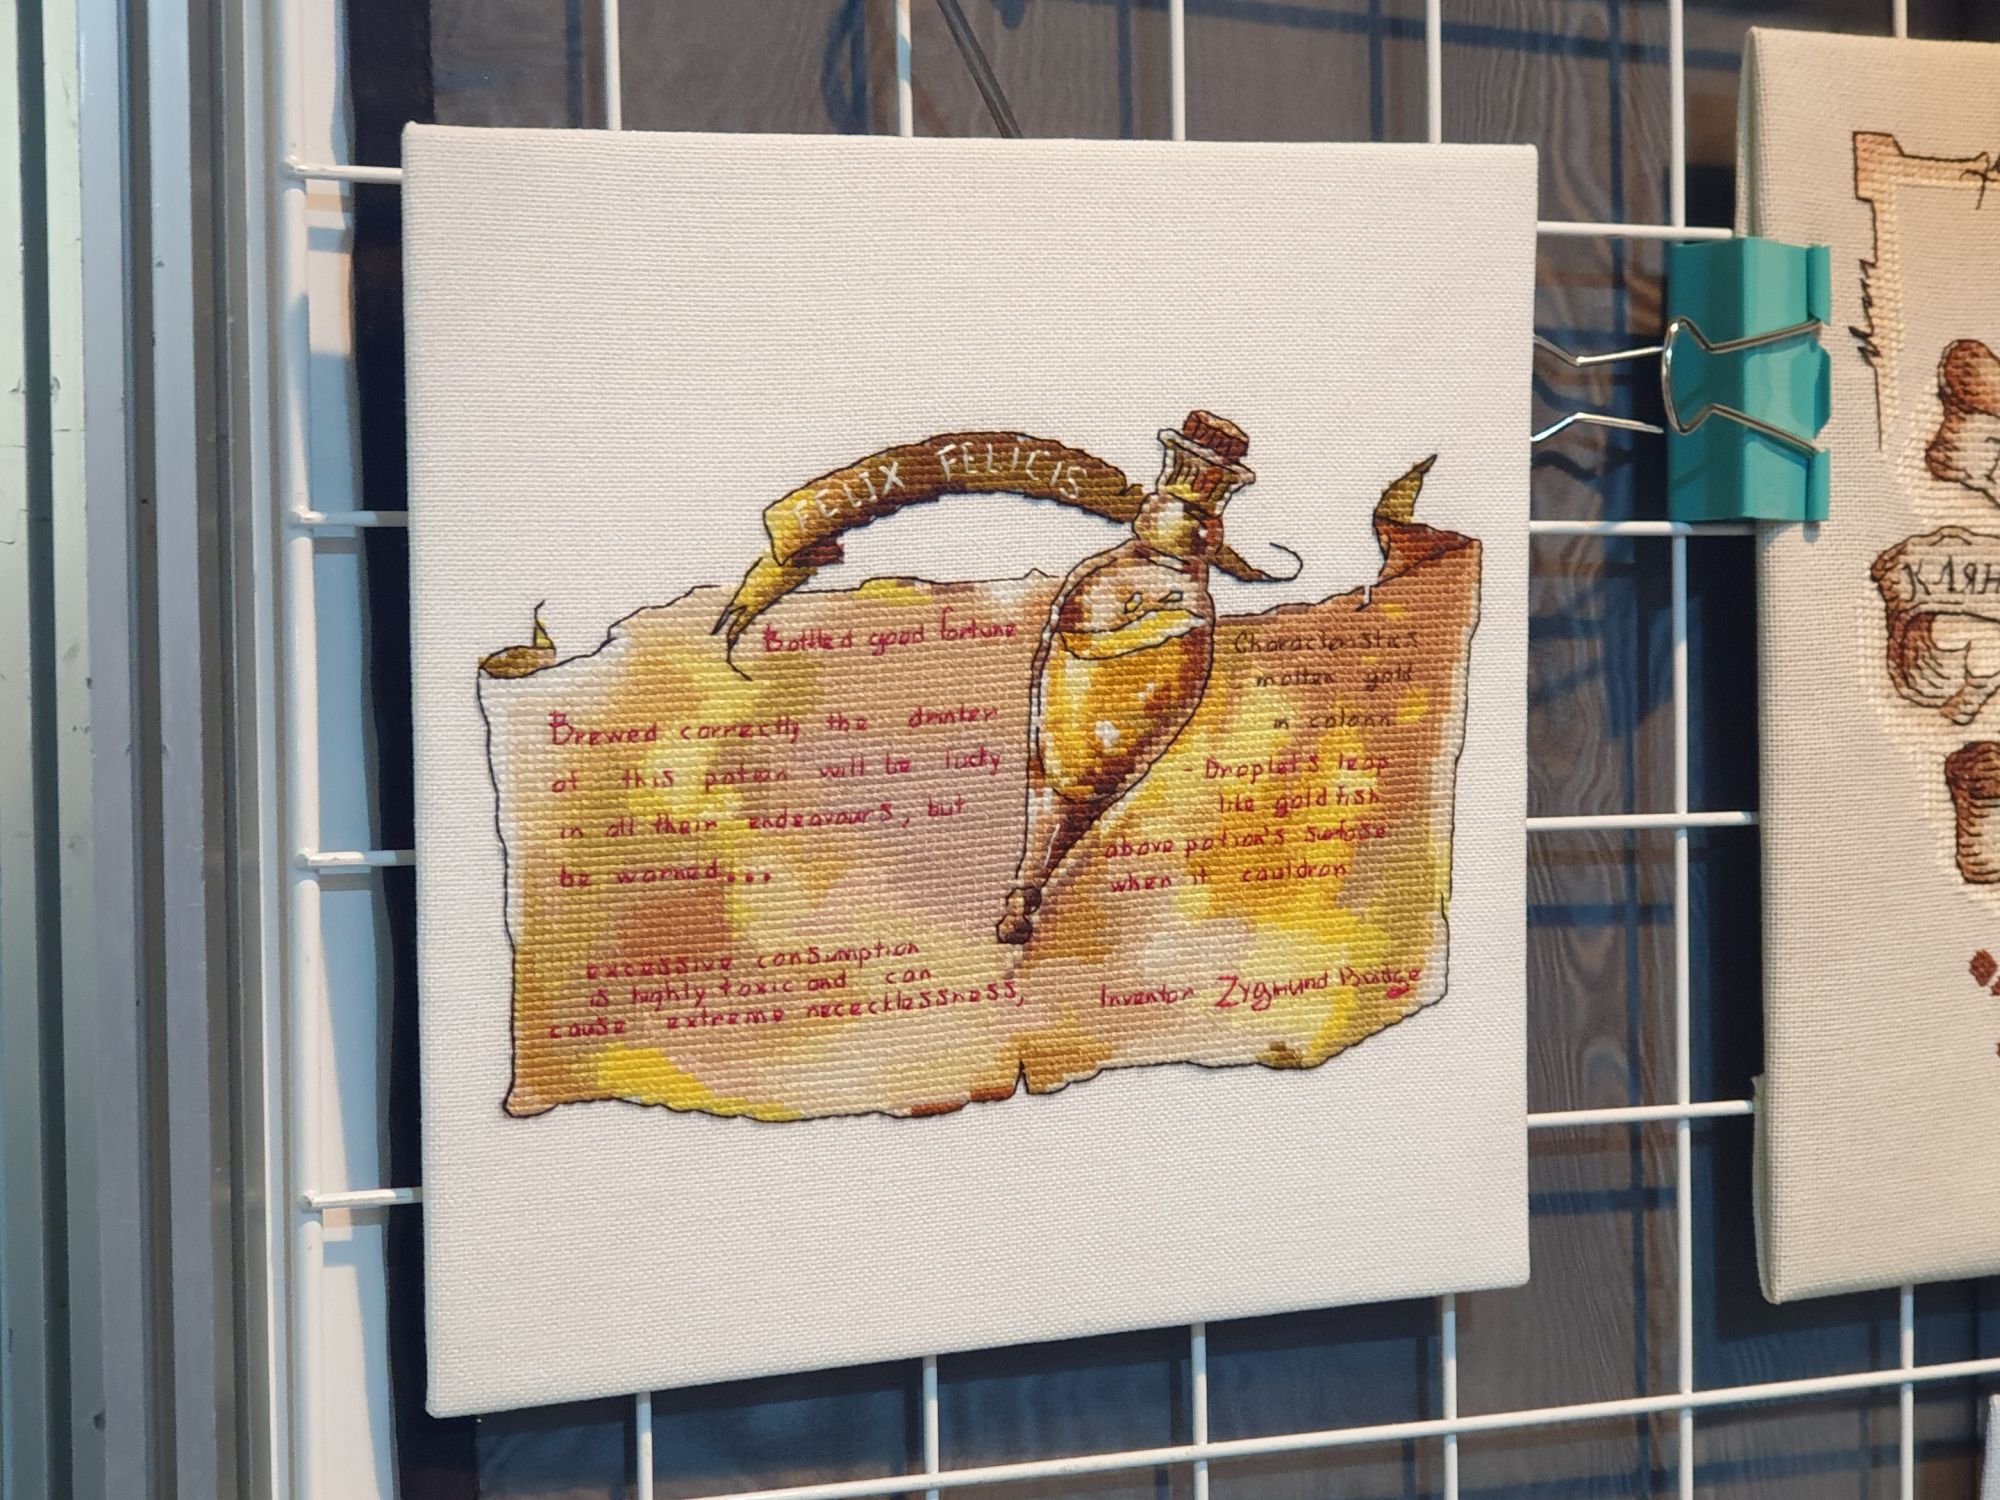 FELIX FELICIS
Bottled good fortune
Brewed correctly the drinker
of this potion will be lucky
in all their endeavours, but
be warned...
excessive consumption
is highly toxic and can
cause extreme rececklessness,
Characteristics
molten gold
in colour
- Droplets leap
like goldfish
above potion's surfase
when it cauldron
Inventor Zygmund Budge